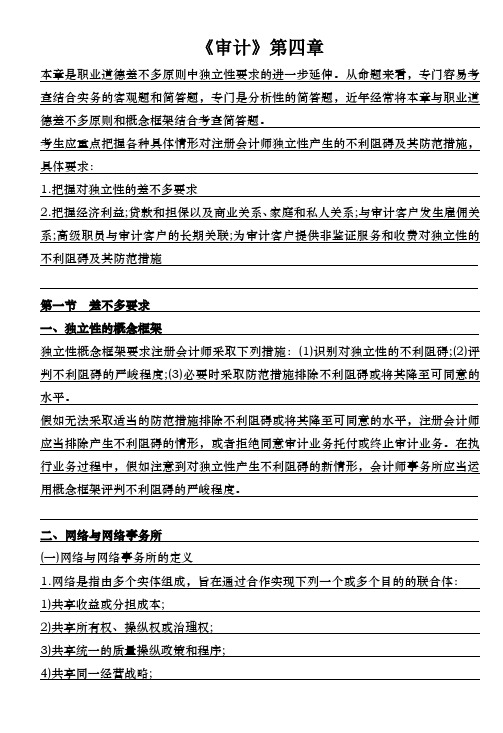 《审计》第四章
本章是职业道德差不多原则中独立性要求的进一步延伸。从命题来看，专门容易考
查结合实务的客观题和简答题，专门是分析性的简答题，近年经常将本章与职业道
德差不多原则和概念框架结合考查简答题。
考生应重点把握各种具体情形对注册会计师独立性产生的不利阻碍及其防范措施，
具体要求：
1.把握对独立性的差不多要求
2.把握经济利益;贷款和担保以及商业关系、家庭和私人关系;与审计客户发生雇佣关
系;高级职员与审计客户的长期关联;为审计客户提供非鉴证服务和收费对独立性的
不利阻碍及其防范措施
第一节　差不多要求
一、独立性的概念框架
独立性概念框架要求注册会计师采取下列措施：(1)识别对独立性的不利阻碍;(2)评
判不利阻碍的严峻程度;(3)必要时采取防范措施排除不利阻碍或将其降至可同意的
水平。
假如无法采取适当的防范措施排除不利阻碍或将其降至可同意的水平，注册会计师
应当排除产生不利阻碍的情形，或者拒绝同意审计业务托付或终止审计业务。在执
行业务过程中，假如注意到对独立性产生不利阻碍的新情形，会计师事务所应当运
用概念框架评判不利阻碍的严峻程度。
二、网络与网络事务所
(一)网络与网络事务所的定义
1.网络是指由多个实体组成，旨在通过合作实现下列一个或多个目的的联合体：
1)共享收益或分担成本;
2)共享所有权、操纵权或治理权;
3)共享统一的质量操纵政策和程序;
4)共享同一经营战略;